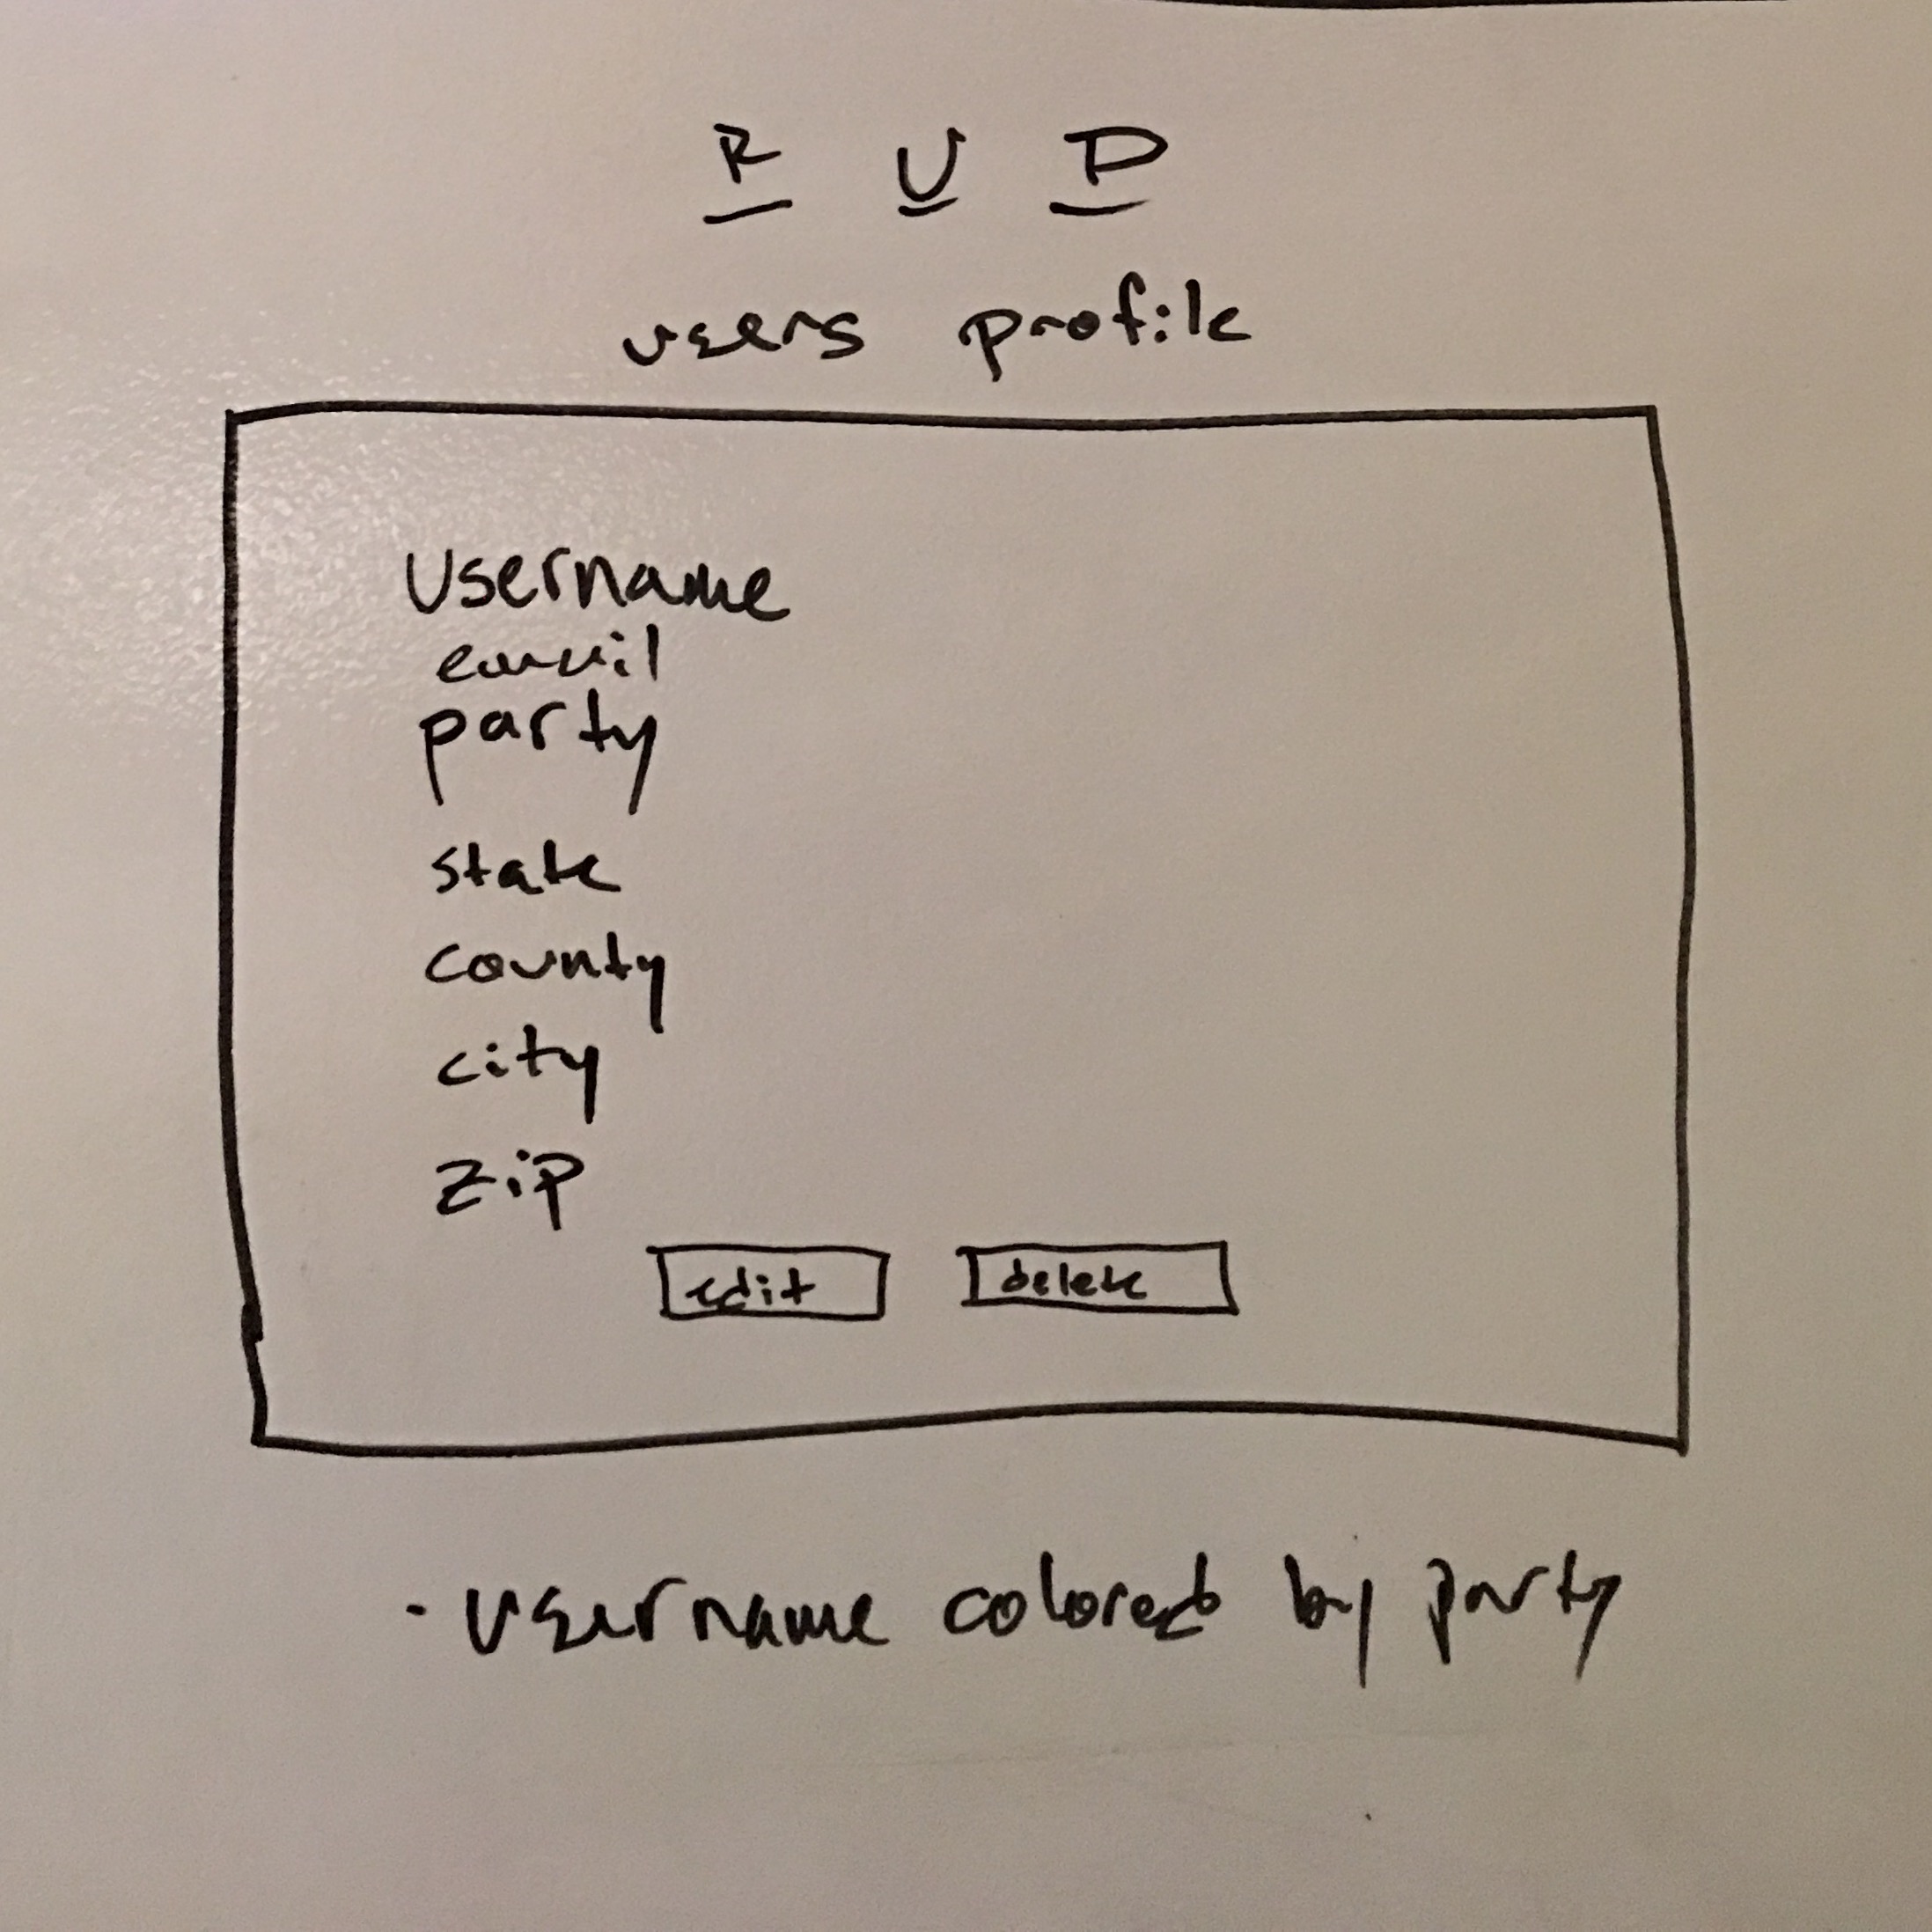 R U D
users profile
Username
email
party
state
county
city
zip
edit delete
- Username colored by party